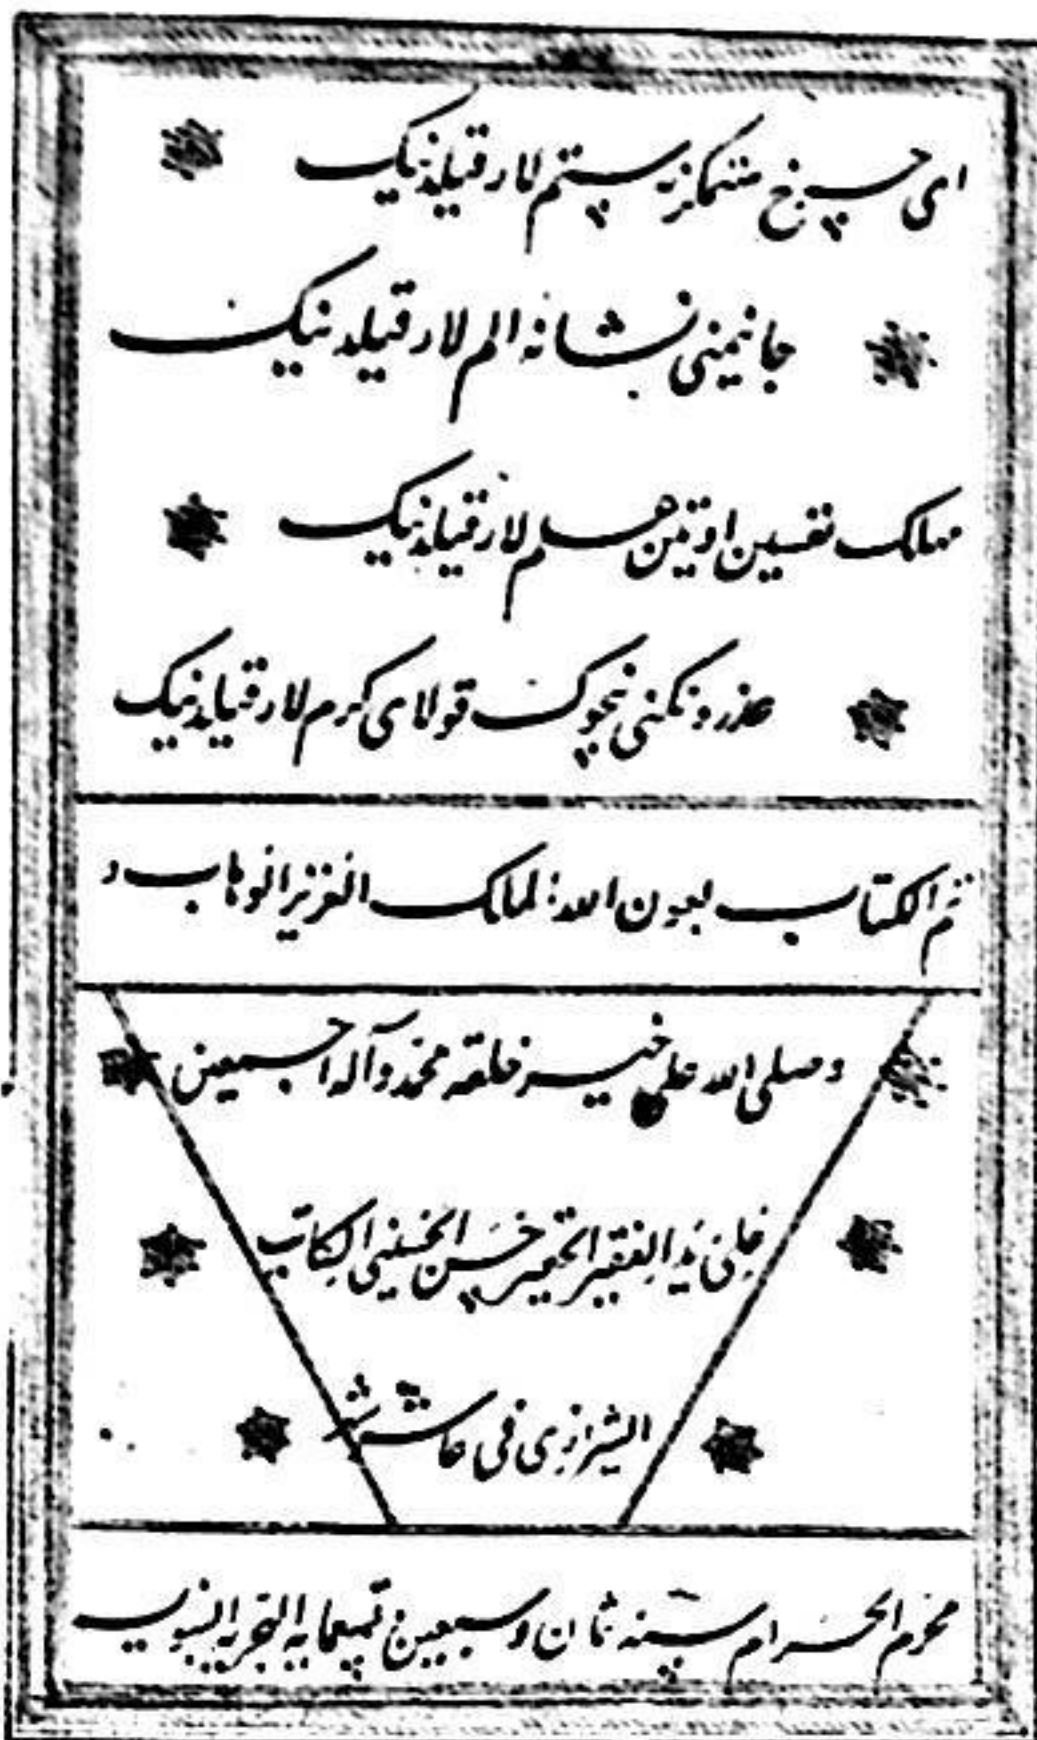 ای چرخ ستمگر نه ستم لار قیلدینک
جانیمنی نشانه الم لار قیلدینک
اوتین لار قیلدینک
قولای کرم لار قیلدینک
تم الکتاب بعون الله الملک العزیز الوهاب و
وصلی الله علی خیر خلقه محمد وآله اجمعین
علی ید الفقیر الحقیر حسن الحسینی الکاتب
الشیرازی فی عاشر شهر
محرم الحرام سنه ثمان وسبعین تسعمایه الهجریه النبویه